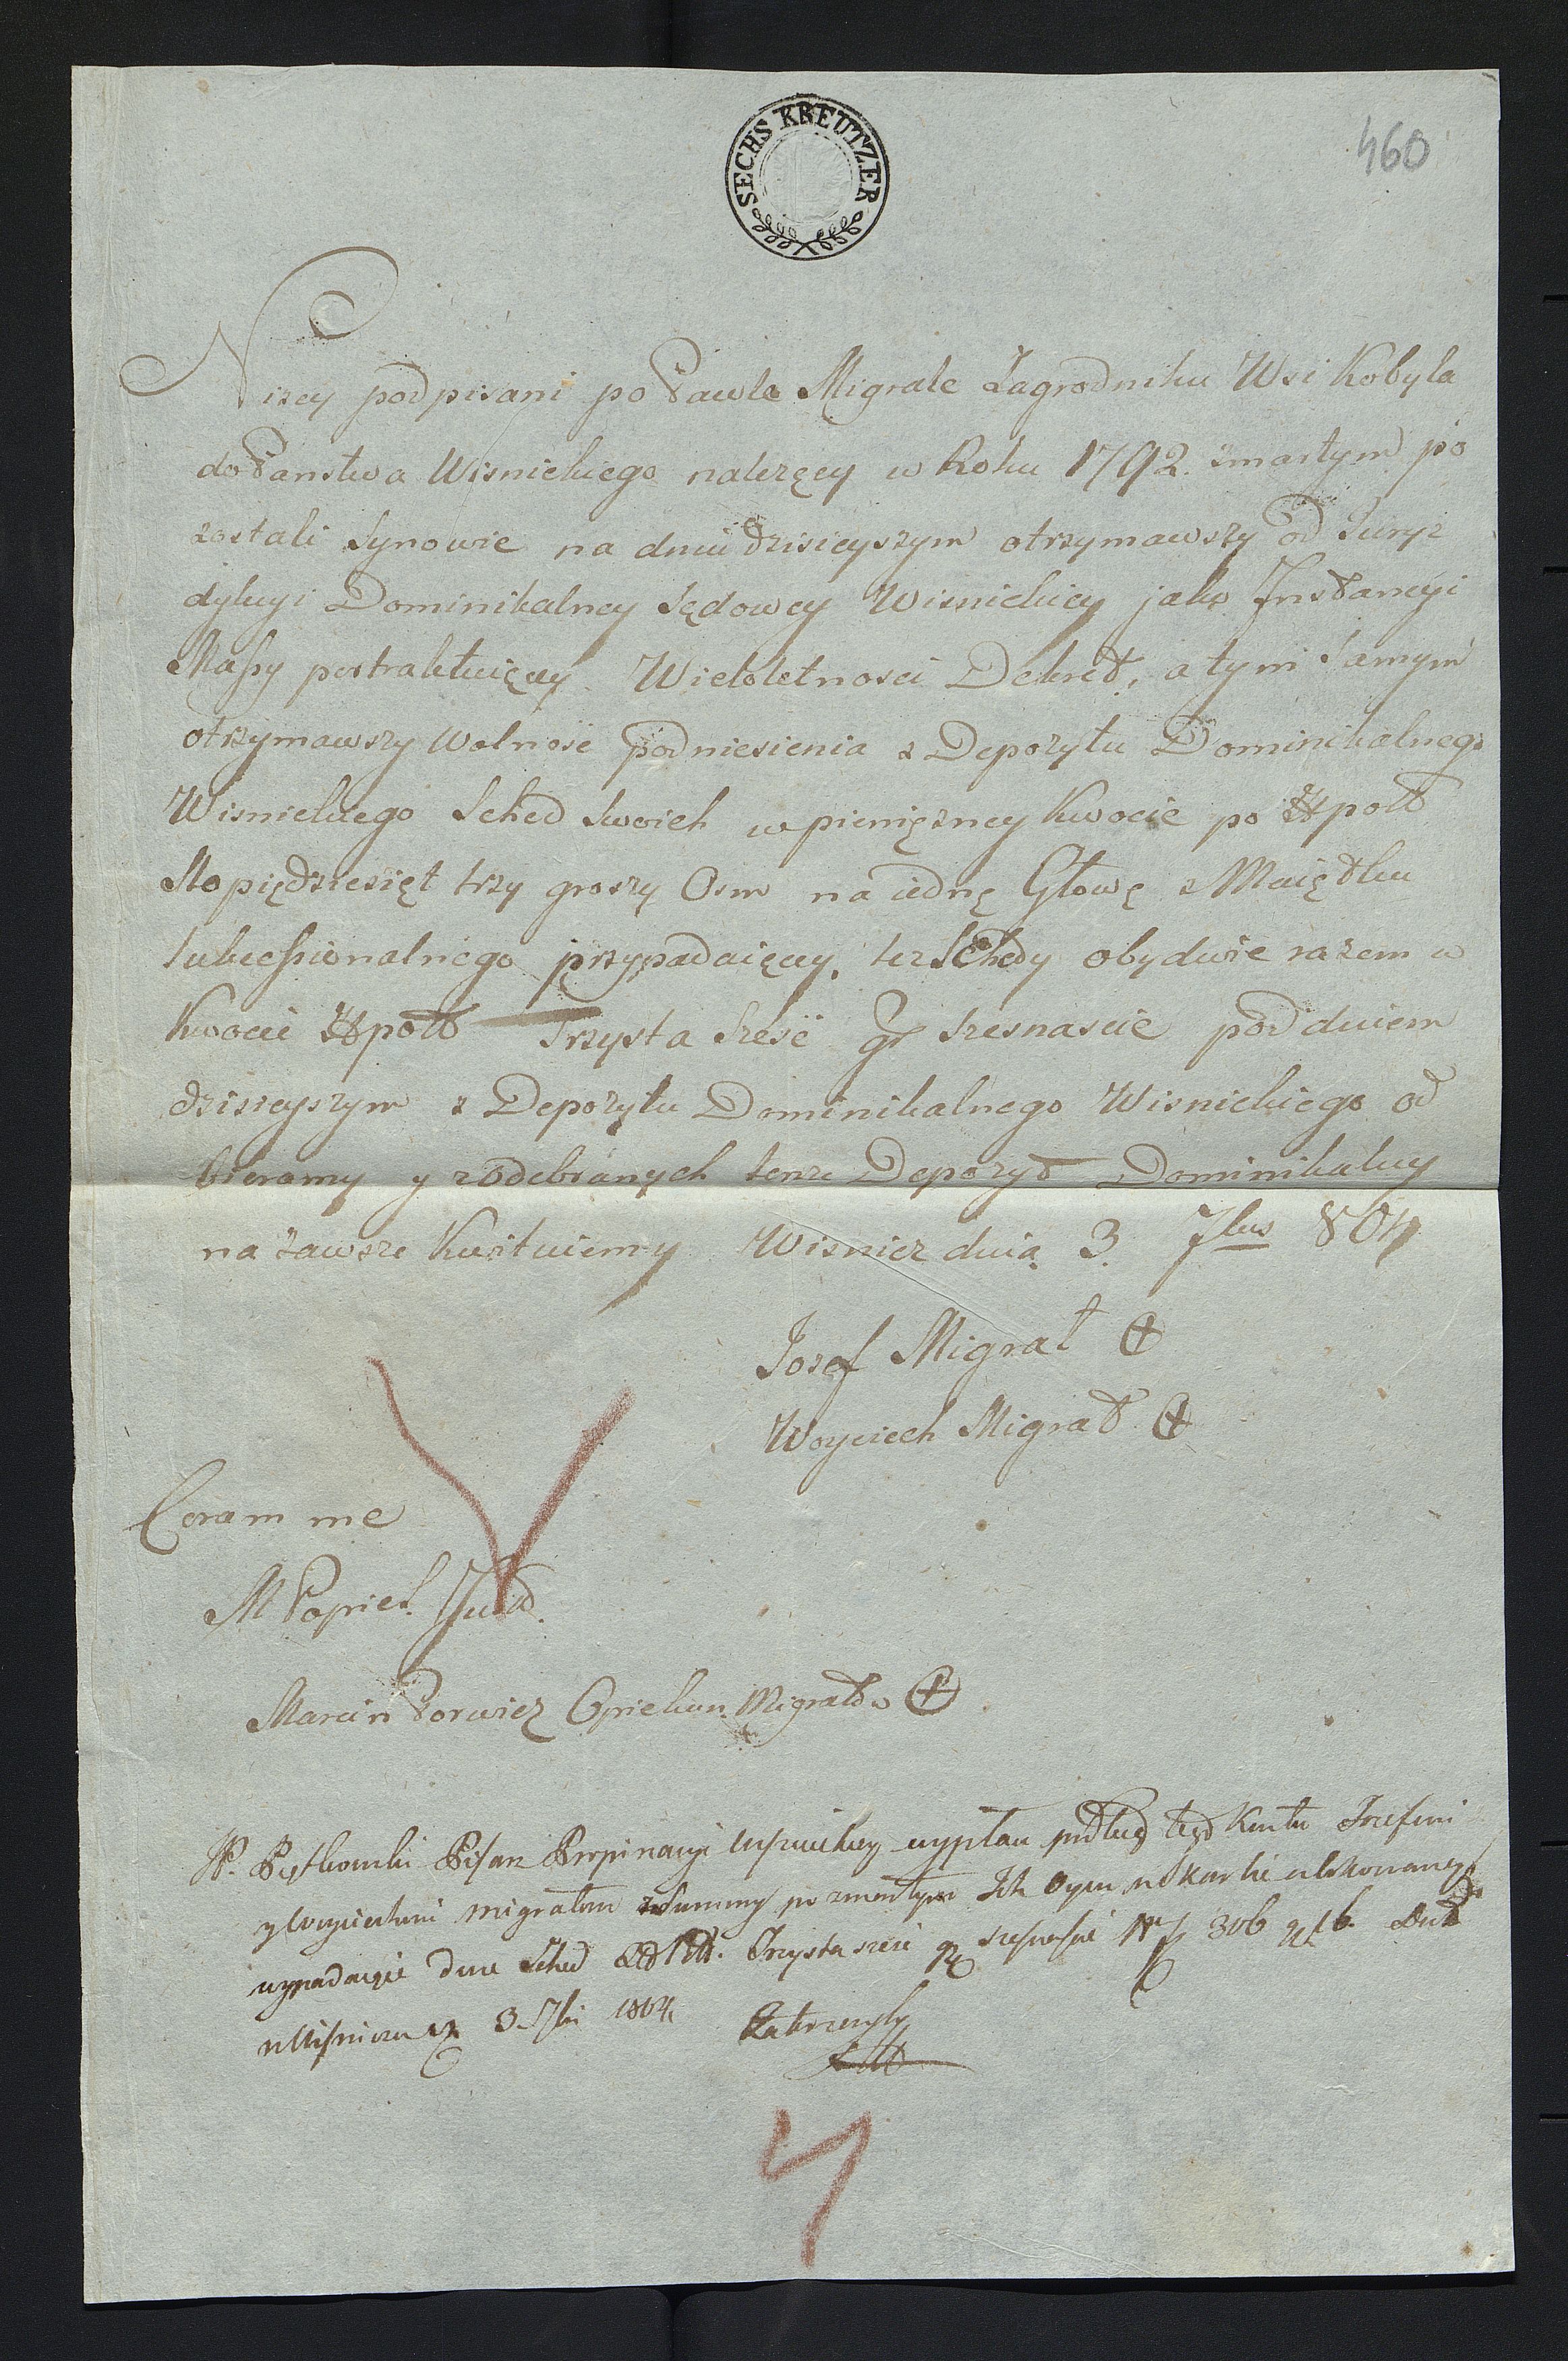 SECHS KREUTZER
460
Nizey podpisani po Pawle Migrale Zagrodniku Wsi Kobyla
do Panstwa Wisnickiego nalezącey w Roku 1792. zmarłym po
zostali Synowie na dniu dzisieyszym otrzymawszy od Juryz
dykcyi Dominikalney Sądowey Wisnickiey jako Instancyi
Massy pertraktuiącey Wieloletnosci Dekret, a tym samym
otrzymawszy wolnosc podniesienia z Depozytu Dominikalnego
Wisnickiego Sched swoich w pienięzney kwocie po Złpolł
Sto pięcdziesiąt trzy groszy Osm na iednę Głowę z Maiątku
sukcessionalnego przypadaiącey, tez Schedy obydwie razem w
kwocie Złpolł Trzysta szesć gr szesnascie pod dniem
dzisieyszym z Depozytu Dominikalnego Wisnickiego od
bieramy y z odebranych tenze Depozyt Dominikalny
na zawsze kwituiemy Wisnicz dnia 3. 7bris 804
Josef Migrał +
Woyciech Migrał +
Coram me
M Popiel Jud.
Marcin Porwicz Opiekun Migrałow +
W. Piątkowski Pisarz Propinacyi Wisnickiey wypłaci podług tego kwitu Jozefowi
y Woyciechowi Migrałom z Summy po zmarłym Ich Oycu
wypadaiące dwie Sched Złpoll. Trzysta szesc gr szesnascie Nr 306 g 16. Dat
w Wisniczu 3. 7bri 1804